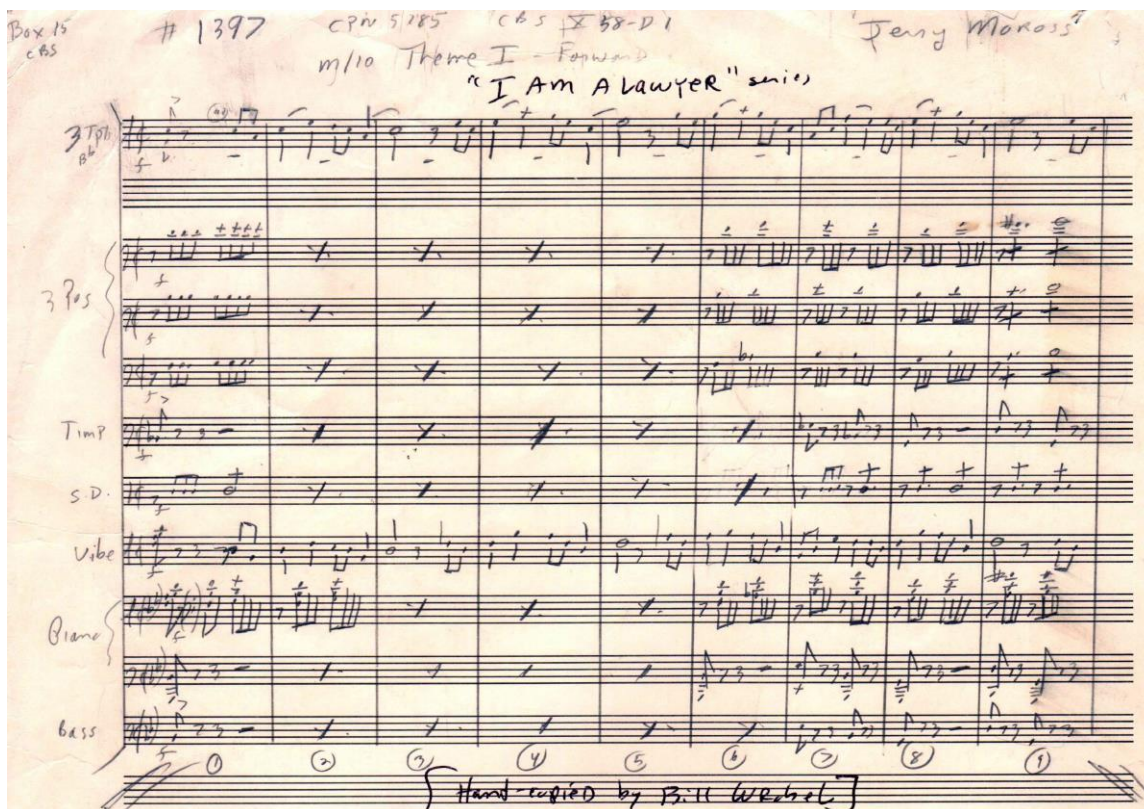 Box 15 # 1397 CPN 5785 CBS X 58-D1 "Jerry Moross"
CBS
m/10 Theme I - Forward
"I AM A LAWYER" series
3 Tpts
Bb
f
3 Pos
f
f
f
Timp
f
S.D.
f
Vibe
f
Piano
f
Bass
f
1 2 3 4 5 6 7 8 9
[Hand-copied by Bill Wrobel]